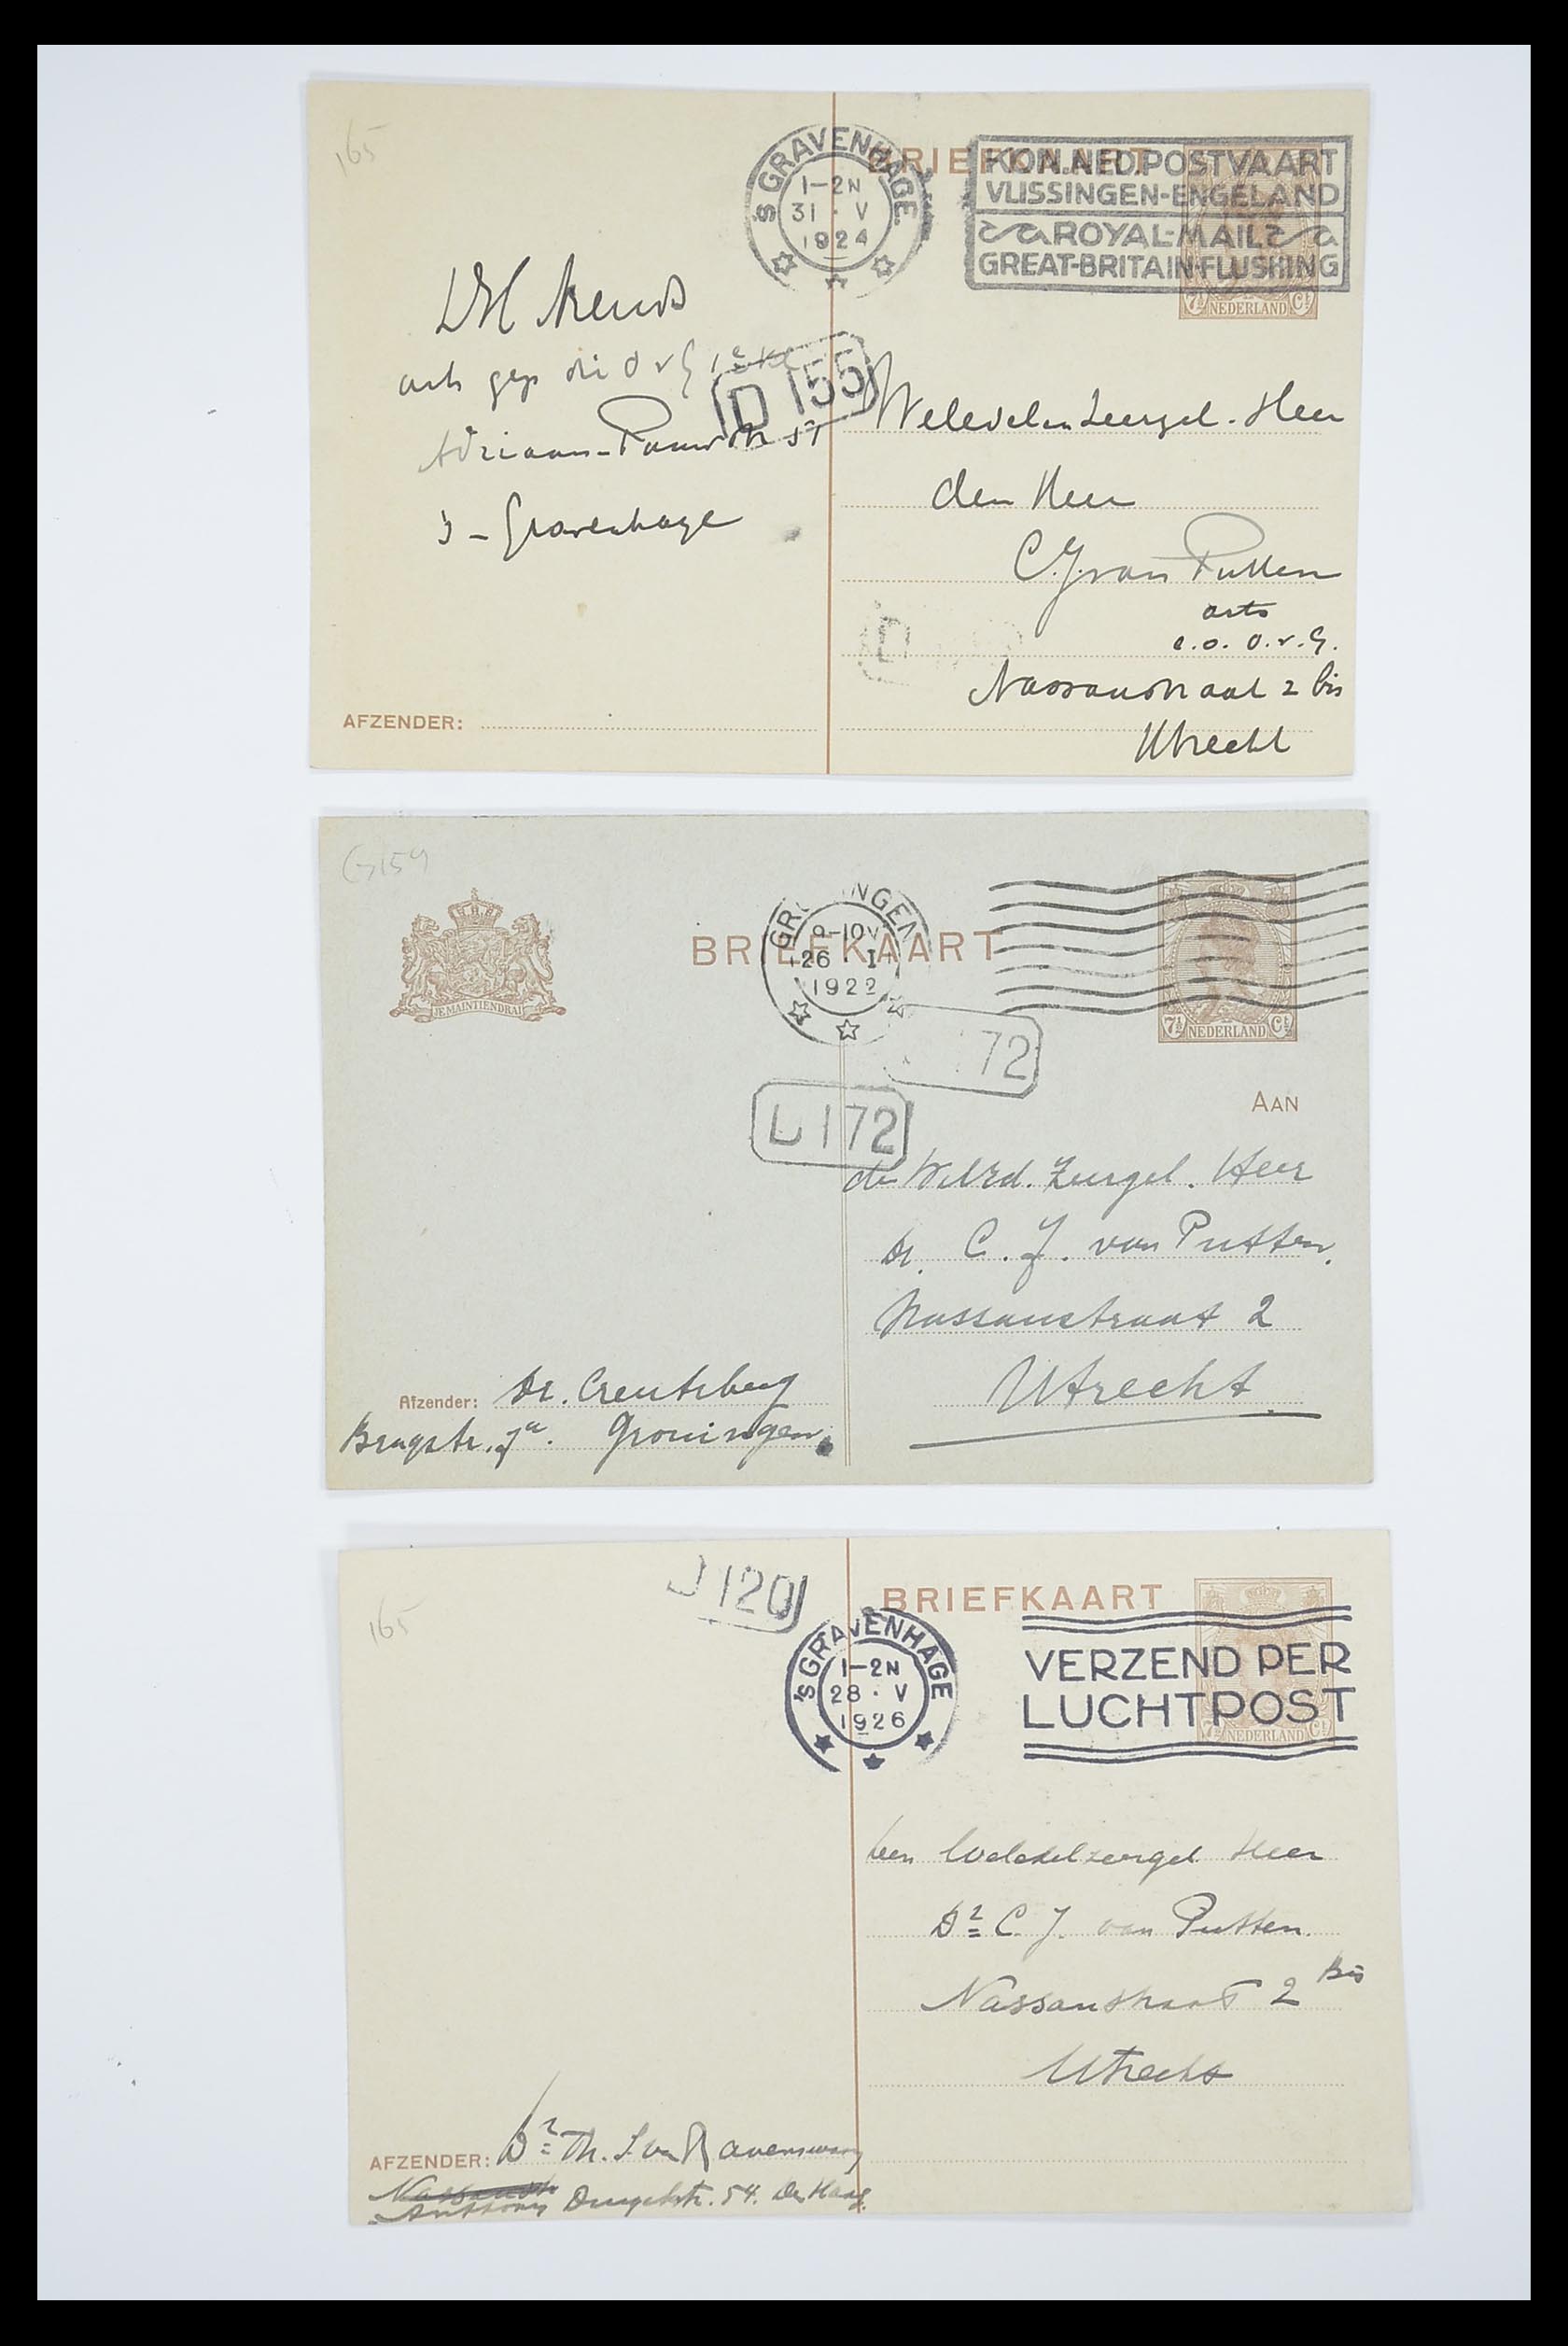 165
'S GRAVENHAGE.
1-2N
31 · V
1924
BRIEFKAART
KON.NED.POSTVAART
VLISSINGEN-ENGELAND
ROYAL-MAIL
GREAT-BRITAIN-FLUSHING
7½ NEDERLAND Ct
arts
D 155
's-Gravenhage
Weledelen Zeergel. Heer
den Heer
C.J. van Putten
arts
e.o. O.v.G.
Nassaustraat 2 bis
Utrecht
AFZENDER:
G159
JE MAINTIENDRAI
BRIEFKAART
GR NINGEN
9-10V
26 · I
1922
7½ NEDERLAND Ct
72
172
AAN
den WelEd. Zeergel. Heer
Dr. C. J. van Putten.
Nassaustraat 2
Utrecht.
Afzender: Dr. Creutzberg
Brugstr. 7a. Groningen.
165
120
BRIEFKAART
'SGRAVENHAGE
1-2N
28 · V
1926
VERZEND PER
LUCHTPOST
7½ NEDERLAND Ct
Den Weledelzeergel. Heer
Dr C. J. van Putten.
Nassaustraat 2 Bis
Utrecht
AFZENDER: Dr Th. S. van Ravenswaay
Anthony Duyckstr. 54. Den Haag.